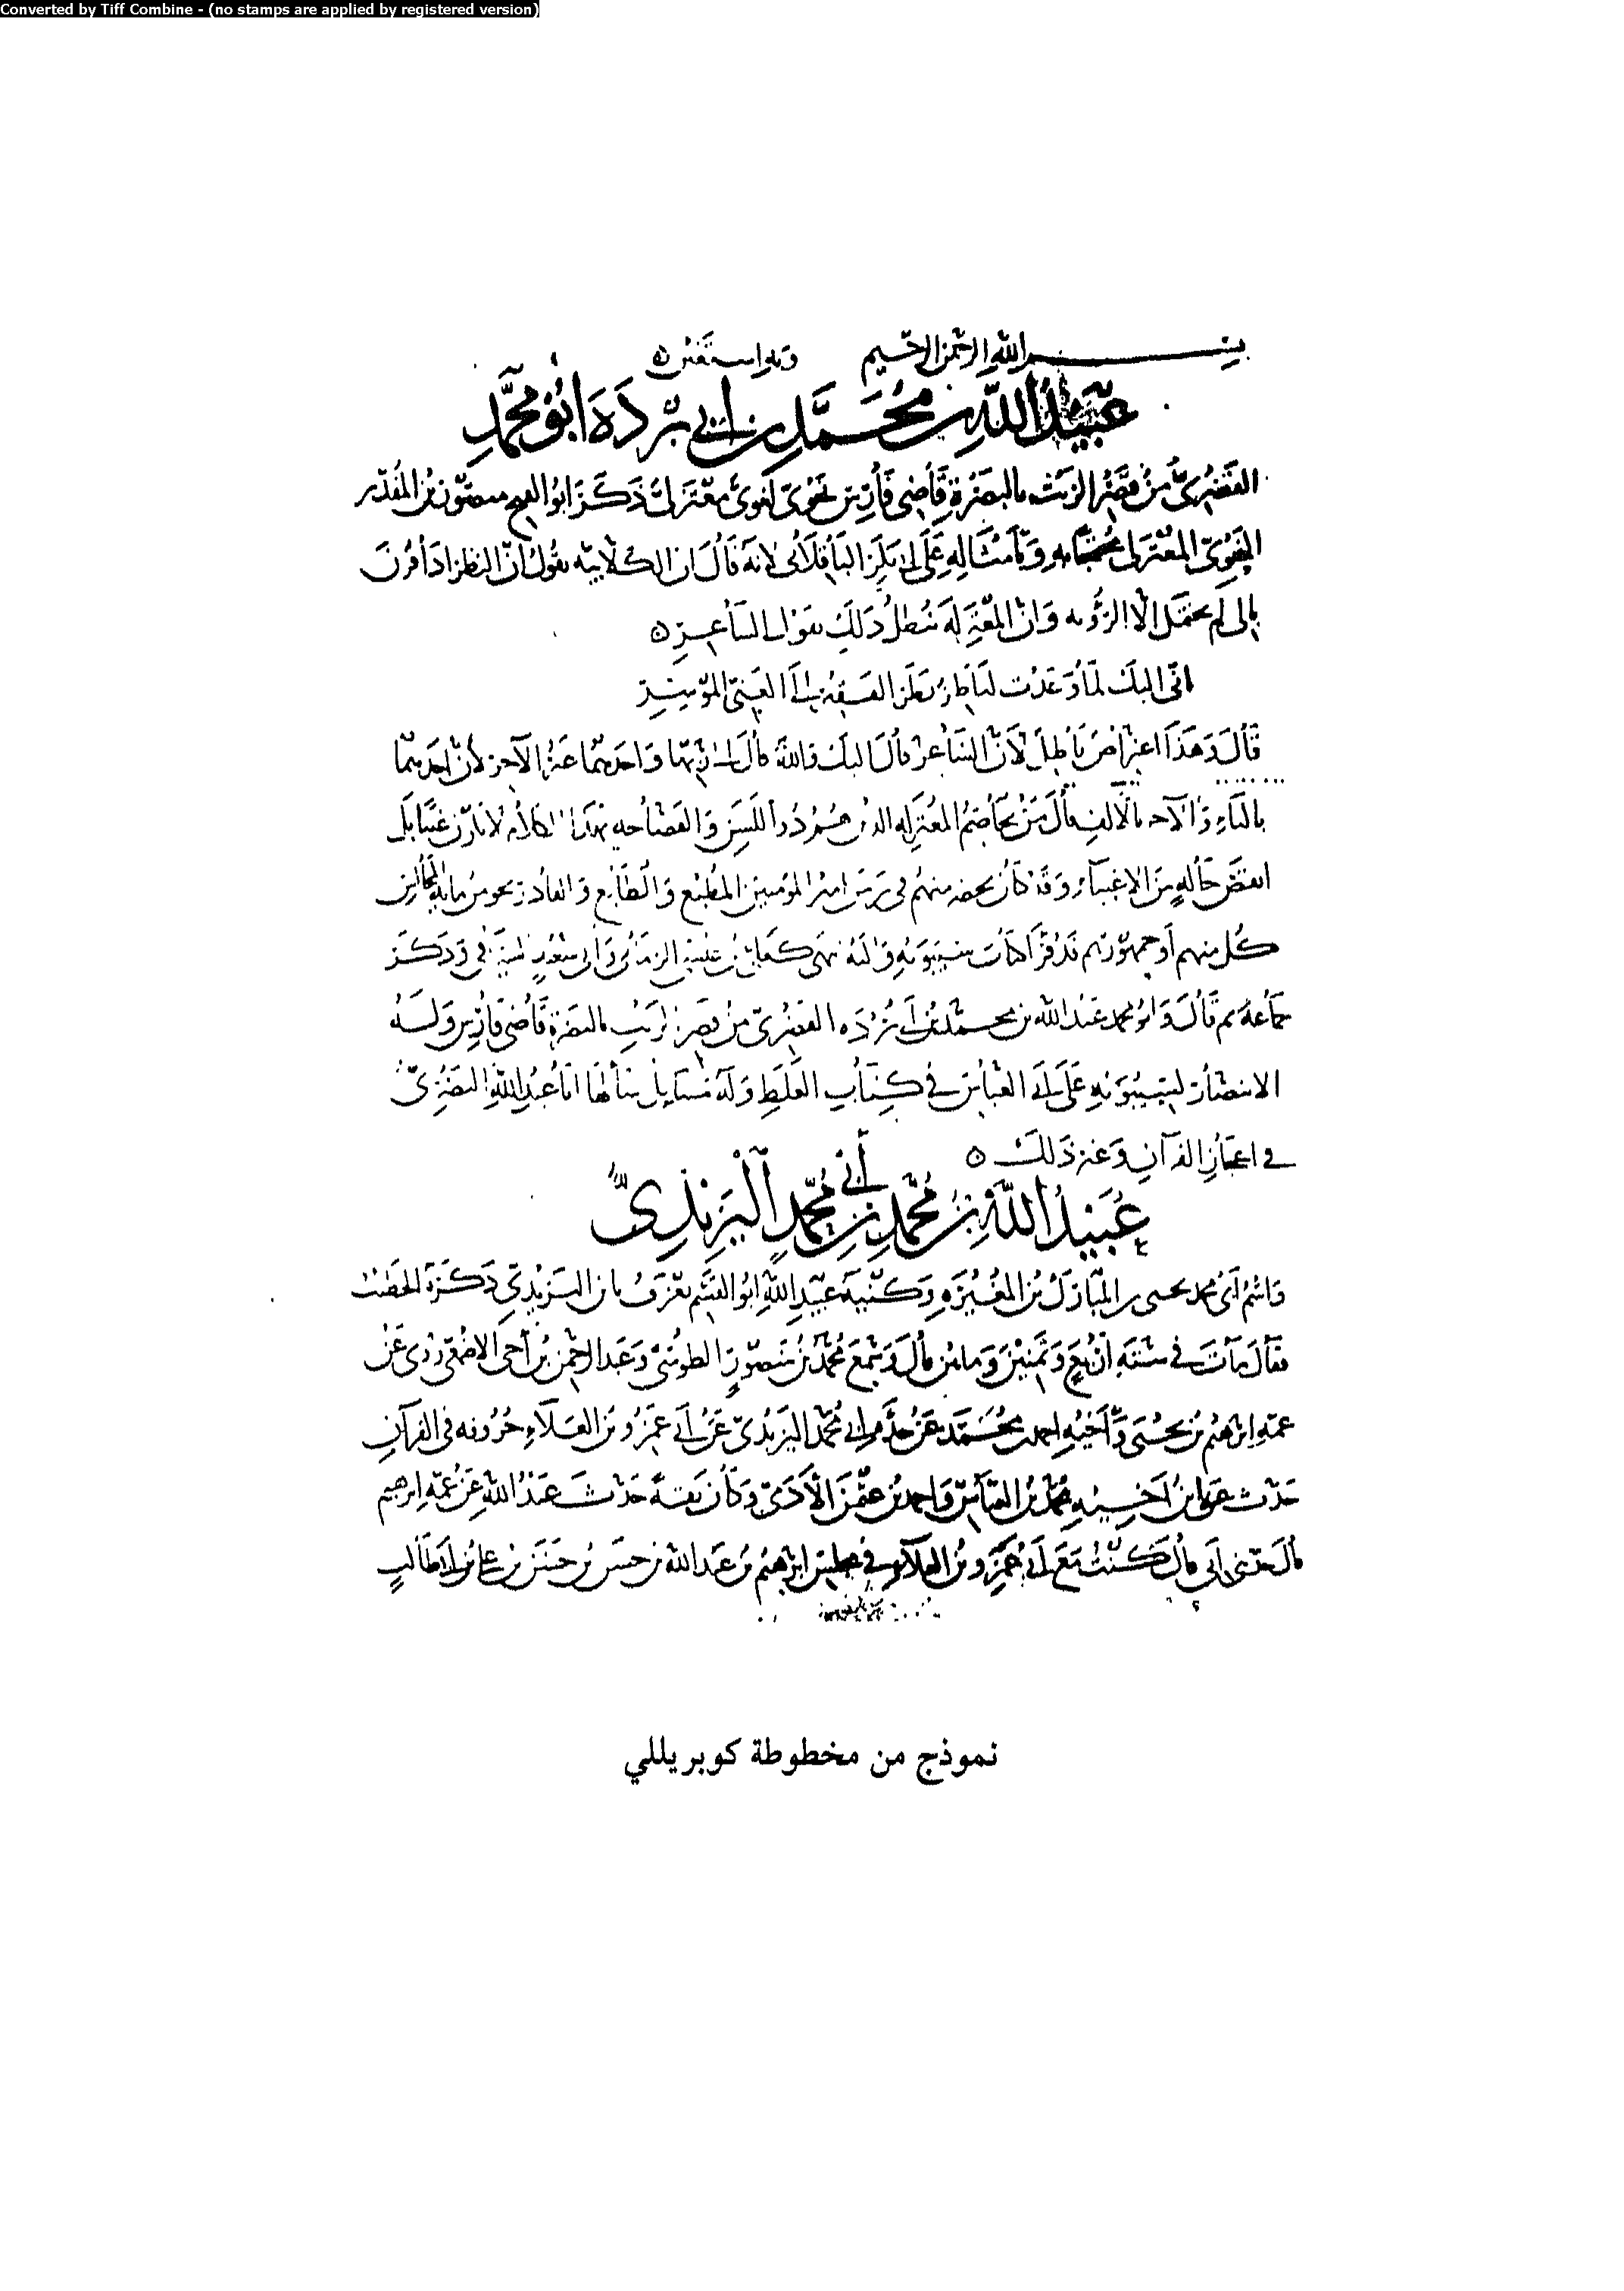 Converted by Tiff Combine - (no stamps are applied by registered version)
بسم الله الرحمن الرحيم وبه استعين
عبيد الله بن محمد بن ابي بردة ابو محمد
القصري من قصر الزيت بالبصرة قاضي فارس نحوي لغوي معتزلي ذكر ابو الفتح منصور بن المقدر
النحوي المعتزلي على ابي بكر الباقلاني لانه قال ان الكلابية يقول ان النظر اذا قرن
بالى لم يحتمل الا الرؤية وان المعتزلة تبطل ذلك بقول الشاعر
اني اليك لما وعدت لناظر نظر الفقير الى الغني الموسر
قال وهذا اعتراض باطل لان الشاعر قال اليك والله قال الى ربها واحدهما غير الآخر لان احدهما
بالياء والآخر بالالف قال من يخاصم المعتزلة الذين هم ذوو اللسن والفصاحة بهذا الكلام لا نارن غبيا بل
انقض حاله من الاغبياء وقد كان بحضر منهم في زمن امير المؤمنين المطيع والطائع والقادر نحو من مايه
كل منهم او جمهورهم قد قرا كتاب سيبويه كعلي بن عيسى الرماني وابي سعيد وذكر
جماعة ثم قال وابو محمد عبيد الله بن محمد بن ابي بردة القصري من قصر الزيت بالبصرة قاضي فارس وله
الانتصار لسيبويه على ابي العباس في كتاب الغلط وله مسايل سالها ابا عبد الله البصري
في اعجاز القرآن وغير ذلك
عبيد الله بن محمد بن أبي محمد اليزيدي
واسم ابي محمد يحيى بن المبارك بن المغيرة وكنية عبيد الله ابو القسم يعرف بابن اليزيدي ذكره الخطيب
فقال مات في سنة اربع وثمنين ومايتين قال وسمع محمد بن منصور الطوسي وعبد الرحمن بن أخي الاصمعي روى عن
عمه ابرهيم بن يحيى وأخيه احمد بن محمد عن جده ابي محمد اليزيدي عن ابي عمرو بن العلاء حروفه في القرآن
حدث عنه ابن اخيه محمد بن العباس واحمد بن عثمن الأدمي وكان ثقة حدث عبيد الله عن عمه ابرهيم
قال حدثني ابي قال كنت مع ابي عمرو بن العلاء في مجلس ابرهيم بن عبد الله بن حسن بن حسن بن علي بن ابي طالب
نموذج من مخطوطة كوبريللي